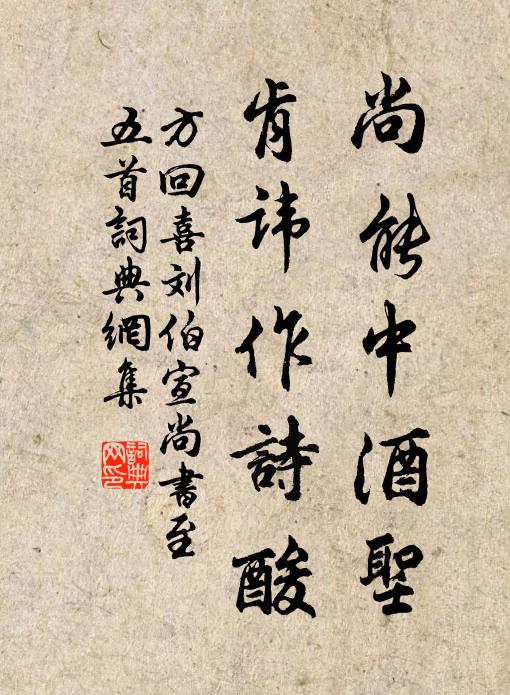 尚能中酒聖
肯讳作詩酸
方回喜刘伯宣尚書至
五首詞典網集
詞典
网印